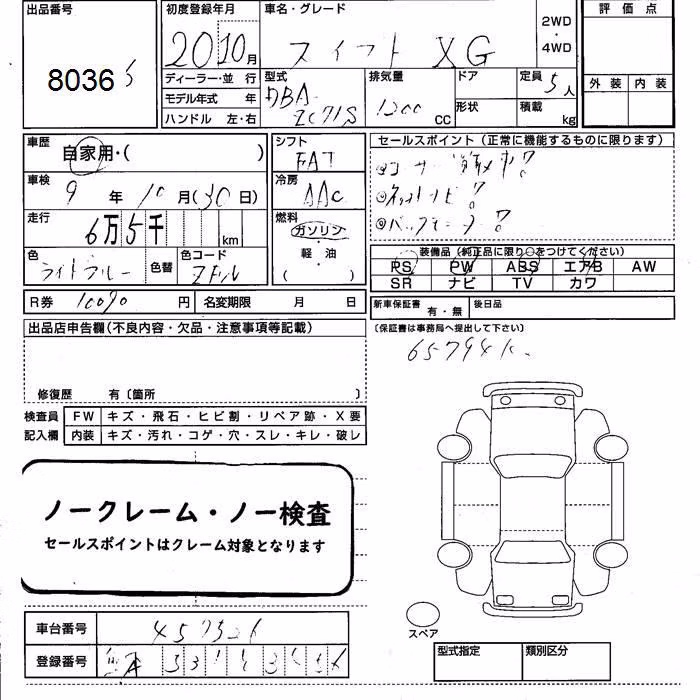 出品番号
8036
初度登録年月
20 10月
車名・グレード
スイフト XG
2WD
・
4WD
評価点
外装 内装
ディーラー・並行
モデル年式 年
ハンドル 左・右
型式
DBA-
ZC71S
排気量
1200
CC
ドア
形状
定員
5人
積載
kg
車歴
自家用・( )
シフト
FAT
セールスポイント (正常に機能するものに限ります)
車検
9年10月(30日)
冷房
AAC
走行
6万5千
km
燃料
ガソリン
・
軽・油
( )
色
ライトブルー
色替
色コード
装備品 (純正品に限り○をつけてください)
PS PW ABS エアB AW
SR ナビ TV カワ
R券 10070円
名変期限 月 日
新車保証書
有・無
後日品
(保証書は事務局へ提出して下さい)
65794K
出品店申告欄(不良内容・欠品・注意事項等記載)
修復歴 有〔箇所 〕
検査員
記入欄
FW キズ・飛石・ヒビ割・リペア跡・X要
内装 キズ・汚れ・コゲ・穴・スレ・キレ・破レ
ノークレーム・ノー検査
セールスポイントはクレーム対象となります
車台番号
登録番号
スペア
型式指定
類別区分